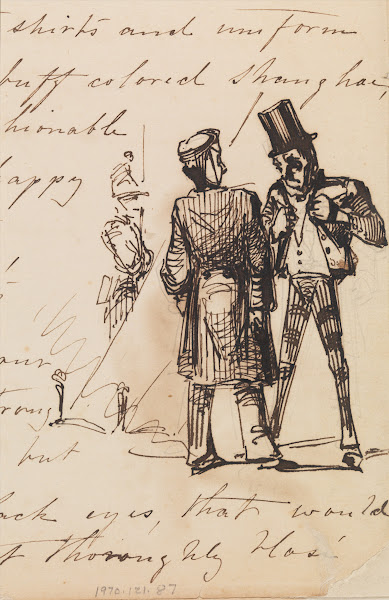 shirts and uniform
buff colored Shanghae,
hionable
happy
our
trong
but
ack eyes, that would
t thoroughly blasé
1970.121.87